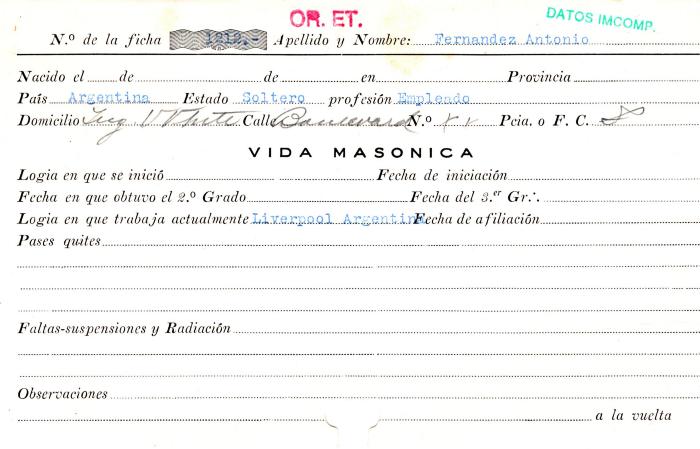 OR. ET.
DATOS IMCOMP.
N.º de la ficha 1212.- Apellido y Nombre: Fernandez Antonio
Nacido el de de en Provincia
País Argentina Estado Soltero profesión Empleado
Domicilio Ing White Calle Boulevard N.º Pcia. o F. C. S
VIDA MASONICA
Logia en que se inició Fecha de iniciación
Fecha en que obtuvo el 2.º Grado Fecha del 3.er Gr∴
Logia en que trabaja actualmente Liverpool Argentina Fecha de afiliación
Pases quites
Faltas-suspensiones y Radiación
Observaciones
a la vuelta